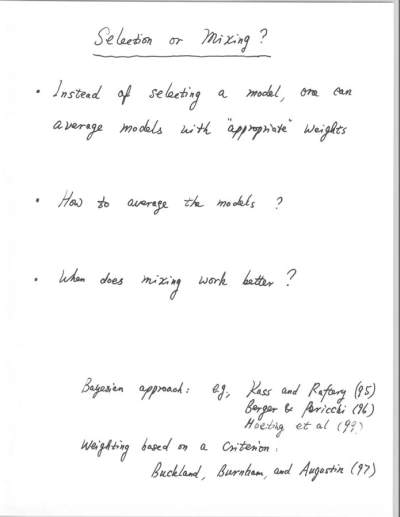 Selection or Mixing?
• Instead of selecting a model, one can
average models with "appropriate" weights
• How to average the models ?
• When does mixing work better ?
Bayesian approach: eg, Kass and Raftery (95)
Berger & Pericchi (96)
Hoeting et al (99)
Weighting based on a Criterion:
Buckland, Burnham, and Augustin (97)